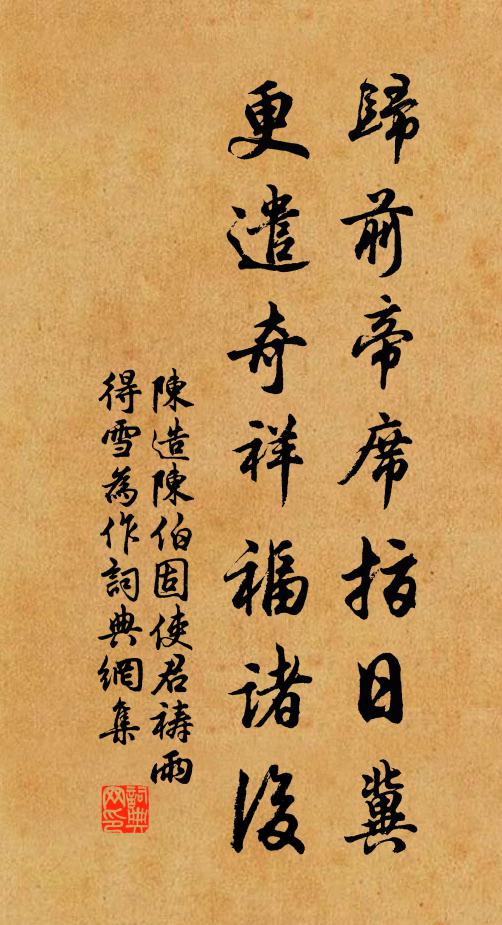 歸前帝席指日冀
更遣奇祥福諸後
陳造陳伯固使君禱雨
得雪為作詞典網集
詞典網印